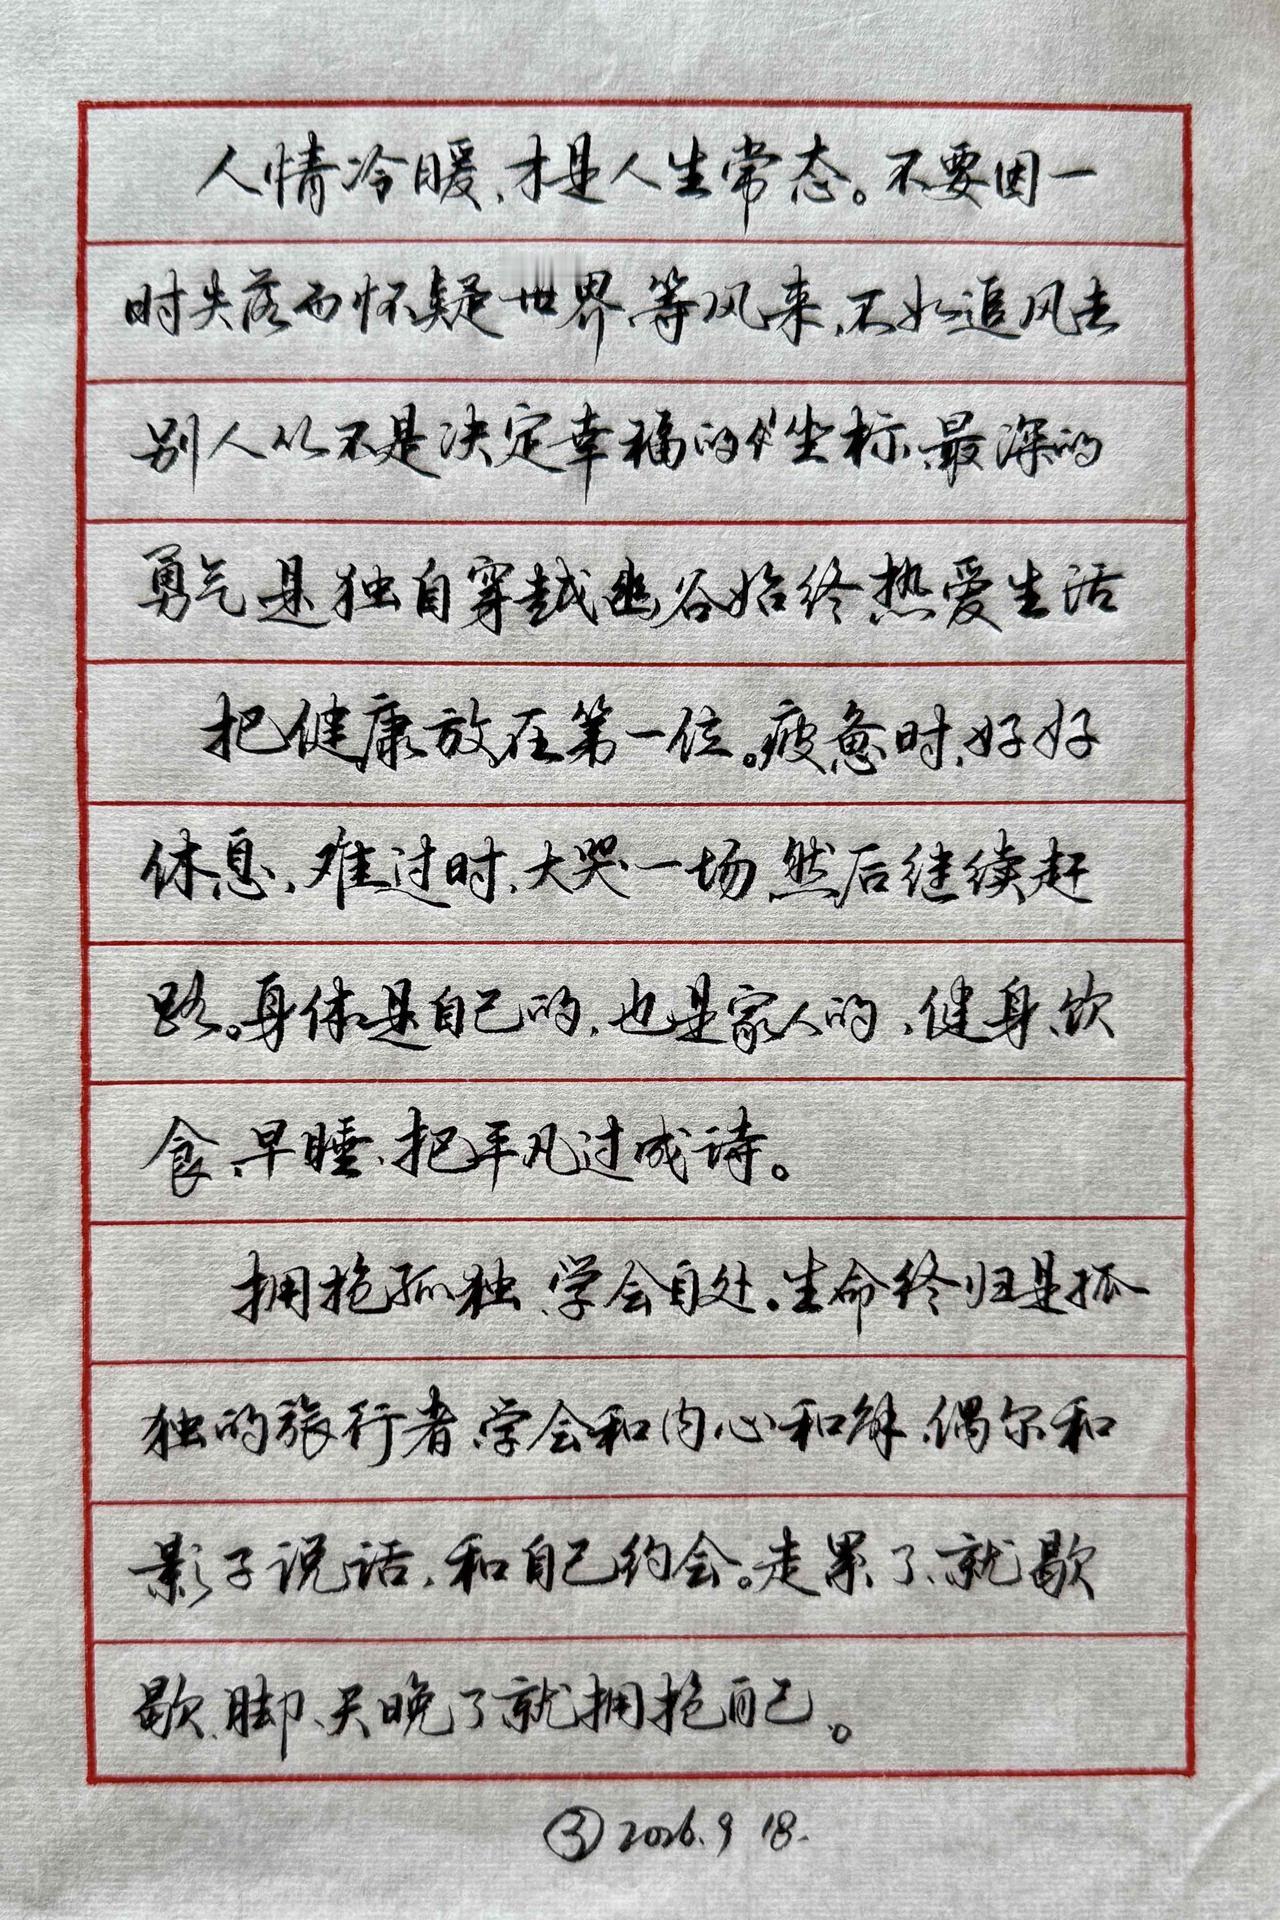 人情冷暖，才是人生常态。不要因一
时失落而怀疑世界、等风来，不如追风去
别人从不是决定幸福的坐标、最深的
勇气是独自穿越幽谷始终热爱生活
把健康放在第一位。疲惫时，好好
休息，难过时，大哭一场，然后继续赶
路。身体是自己的，也是家人的，健身、饮
食、早睡，把平凡过成诗。
拥抱孤独、学会自处。生命终归是孤
独的旅行者、学会和内心和解，偶尔和
影子说话，和自己约会。走累了、就歇
歇脚、天晚了就拥抱自己。
③ 2026.9 18.